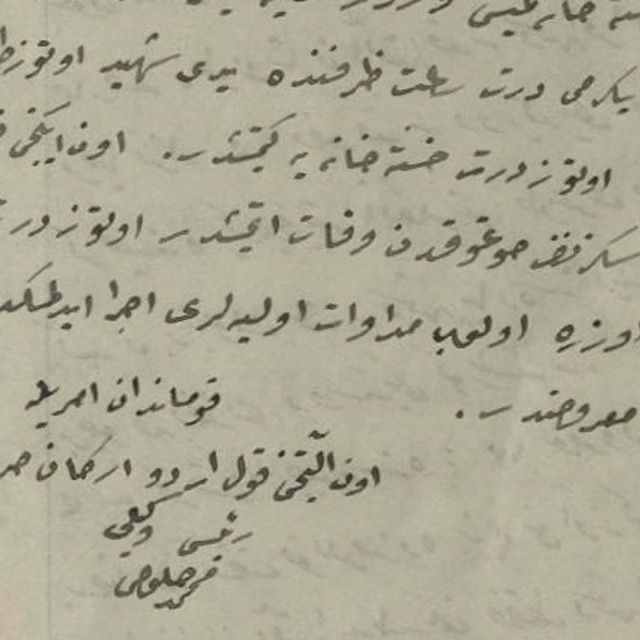 یكرمی درت ساعت ظرفنده یدی شهید اوتوز
اوتوز درت خسته خانه یه كیتمشدر. اون ایكنجی
سكز نفر صوغوقدن وفات ایتمشدر اوتوز درت
اوزره اولوب مداوات اولیه لری اجرا ایدلمكده
معروضدر.
قوماندان امریله
اون آلتنجی قول اردو اركان حر
رئیس وكیلی